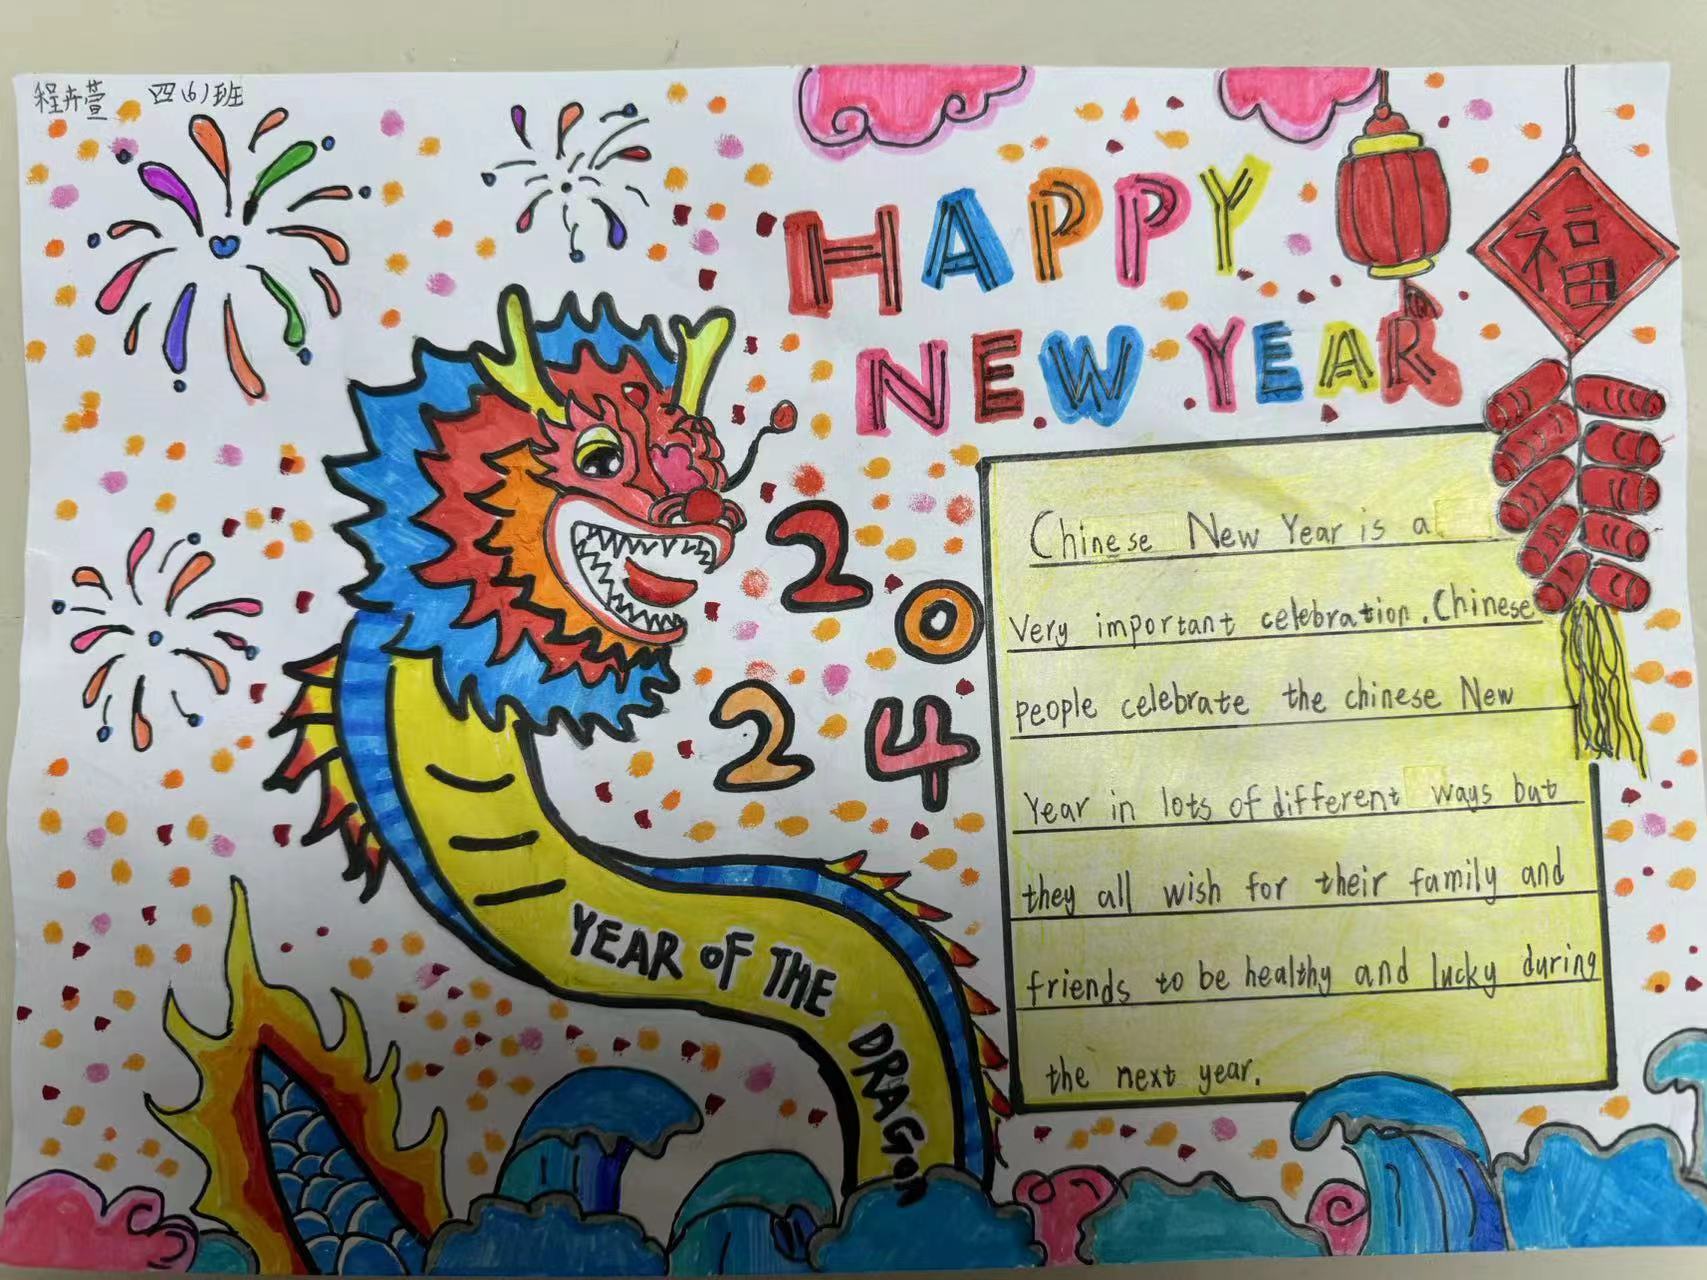 程卉萱 四(6)班
HAPPY
NEW YEAR
福
20
24
Chinese New Year is a
Very important celebration. Chinese
people celebrate the chinese New
Year in lots of different ways but
they all wish for their family and
friends to be healthy and lucky during
the next year.
YEAR OF THE DRAGON